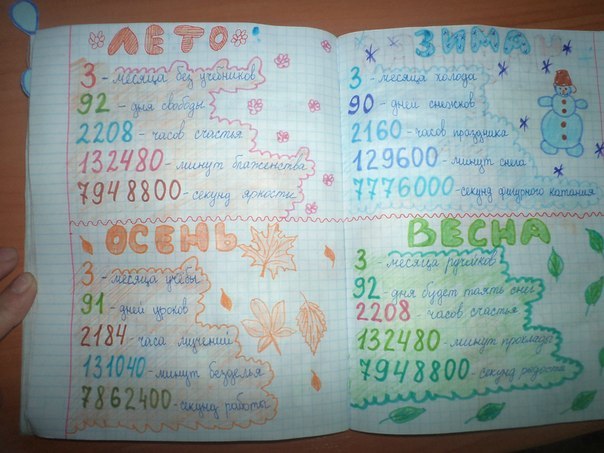 ЛЕТО
3 - месяца без учебников
92 - дня свободы
2208 - часов счастья
132480 - минут блаженства
7948800 - секунд яркости
ЗИМА
3 - месяца холода
90 - дней снежков
2160 - часов праздника
129600 - минут снега
7776000 - секунд фигурного катания
ОСЕНЬ
3 - месяца учёбы
91 - дней уроков
2184 - часа мучений
131040 - минут безделья
7862400 - секунд работы
ВЕСНА
3 месяца ручейков
92 дня будет таять снег
2208 часов счастья
132480 - минут прохлады
7948800 - секунд радости